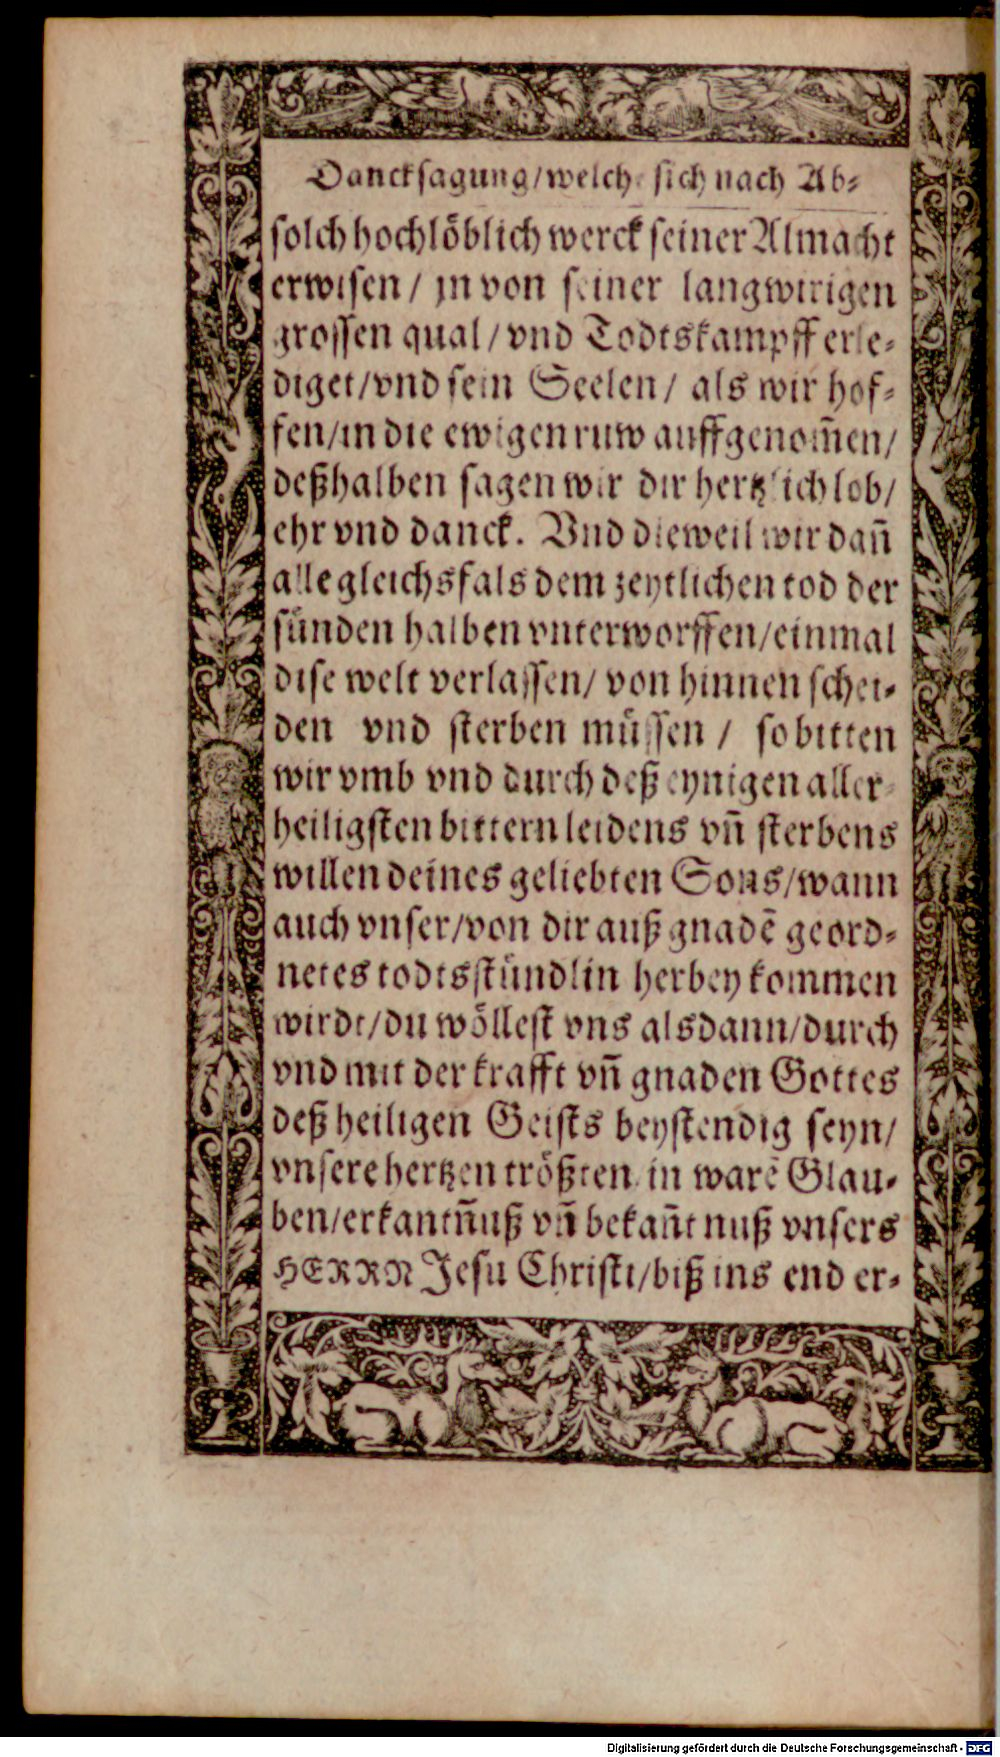 Dancksagung/welche sich nach Ab⸗
solch hochlöblich werck seiner Almacht
erwisen / jn von seiner langwirigen
grossen qual/ vnd Todtskampff erle⸗
diget/vnd sein Seelen/ als wir hof⸗
fen/in die ewigen ruw auffgenom̄en/
deßhalben sagen wir dir hertzlich lob/
ehr vnd danck. Vnd dieweil wir dan̄
alle gleichsfals dem zeytlichen tod der
sünden halben vnterworffen/einmal
dise welt verlassen/ von hinnen schei⸗
den vnd sterben müssen / so bitten
wir vmb vnd durch deß eynigen aller⸗
heiligsten bittern leidens vn̄ sterbens
willen deines geliebten Sons/wann
auch vnser/von dir auß gnadē geord⸗
netes todtsstündlin herbey kommen
wirdt/du wöllest vns alsdann/durch
vnd mit der krafft vn̄ gnaden Gottes
deß heiligen Geists beystendig seyn/
vnsere hertzen trößten in warē Glau⸗
ben/erkantn̄uß vn̄ bekan̄tnuß vnsers
HERRN Jesu Christi/biß ins end er⸗
Digitalisierung gefördert durch die Deutsche Forschungsgemeinschaft - DFG